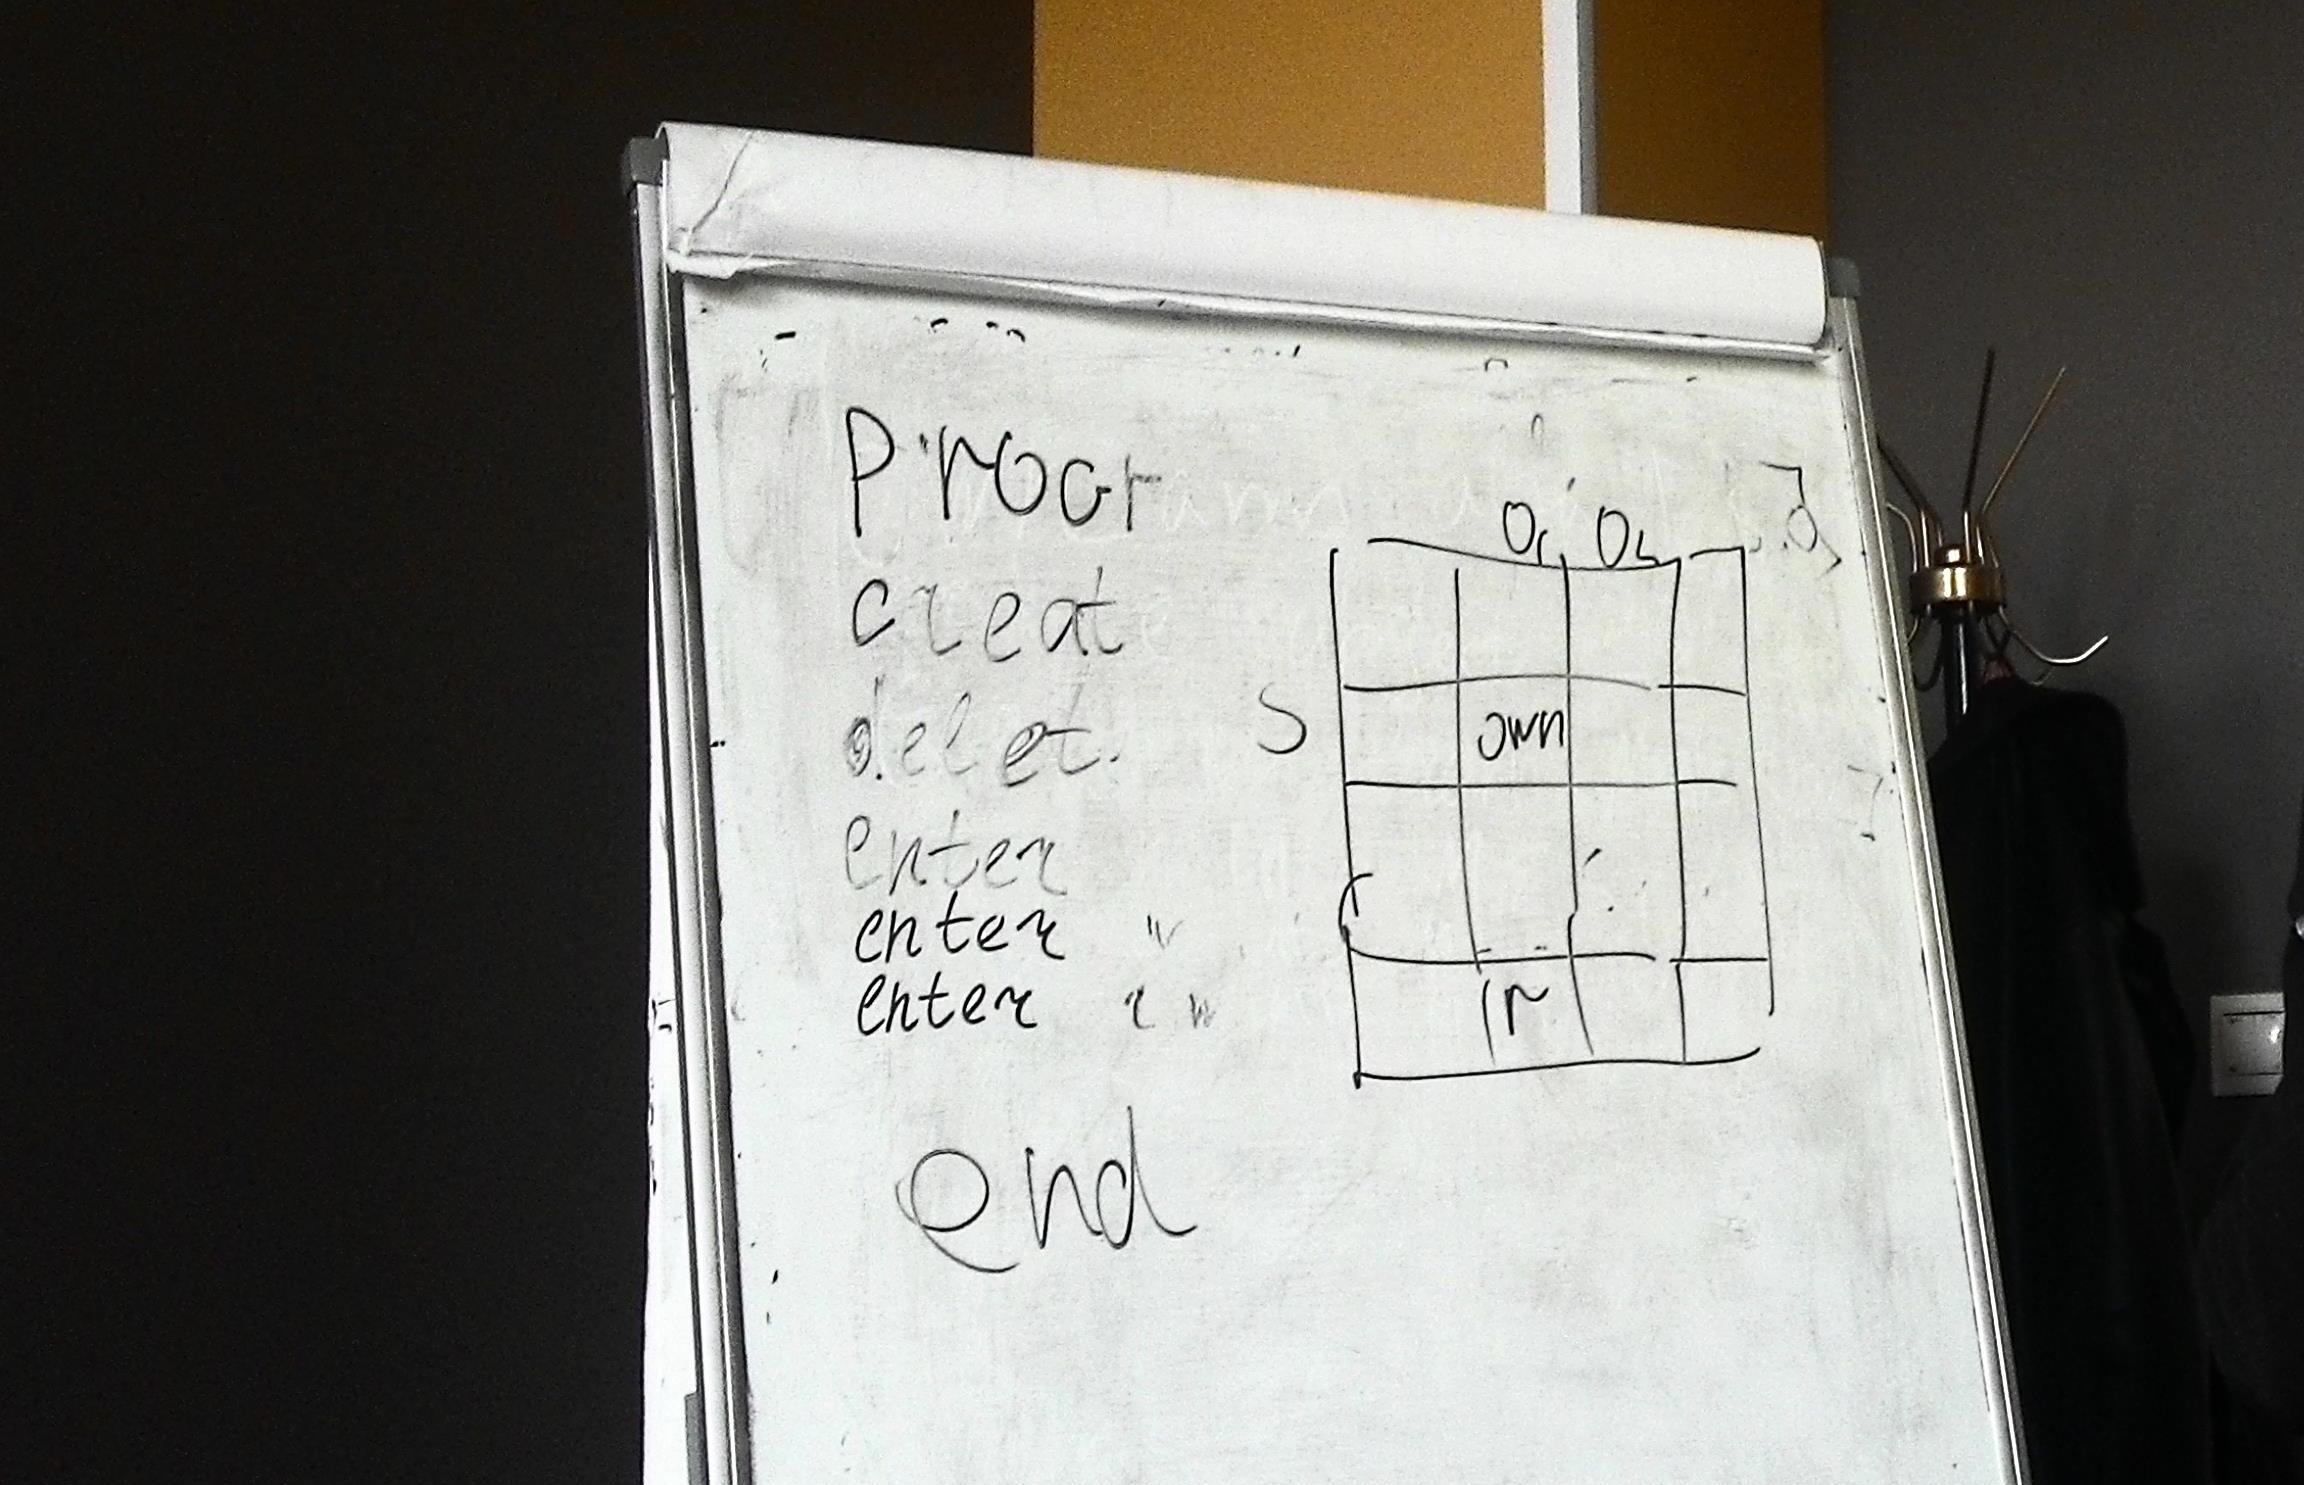 Progr
create
delet.
enter
enter
enter r w
end
O₁ O₂
S
own
r